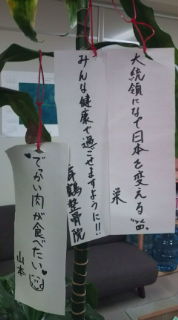 大統領になって日本を変える
栄
みんな健康で過ごせますように!!
寿鶴整骨院
でっかい肉が食べたい
山本